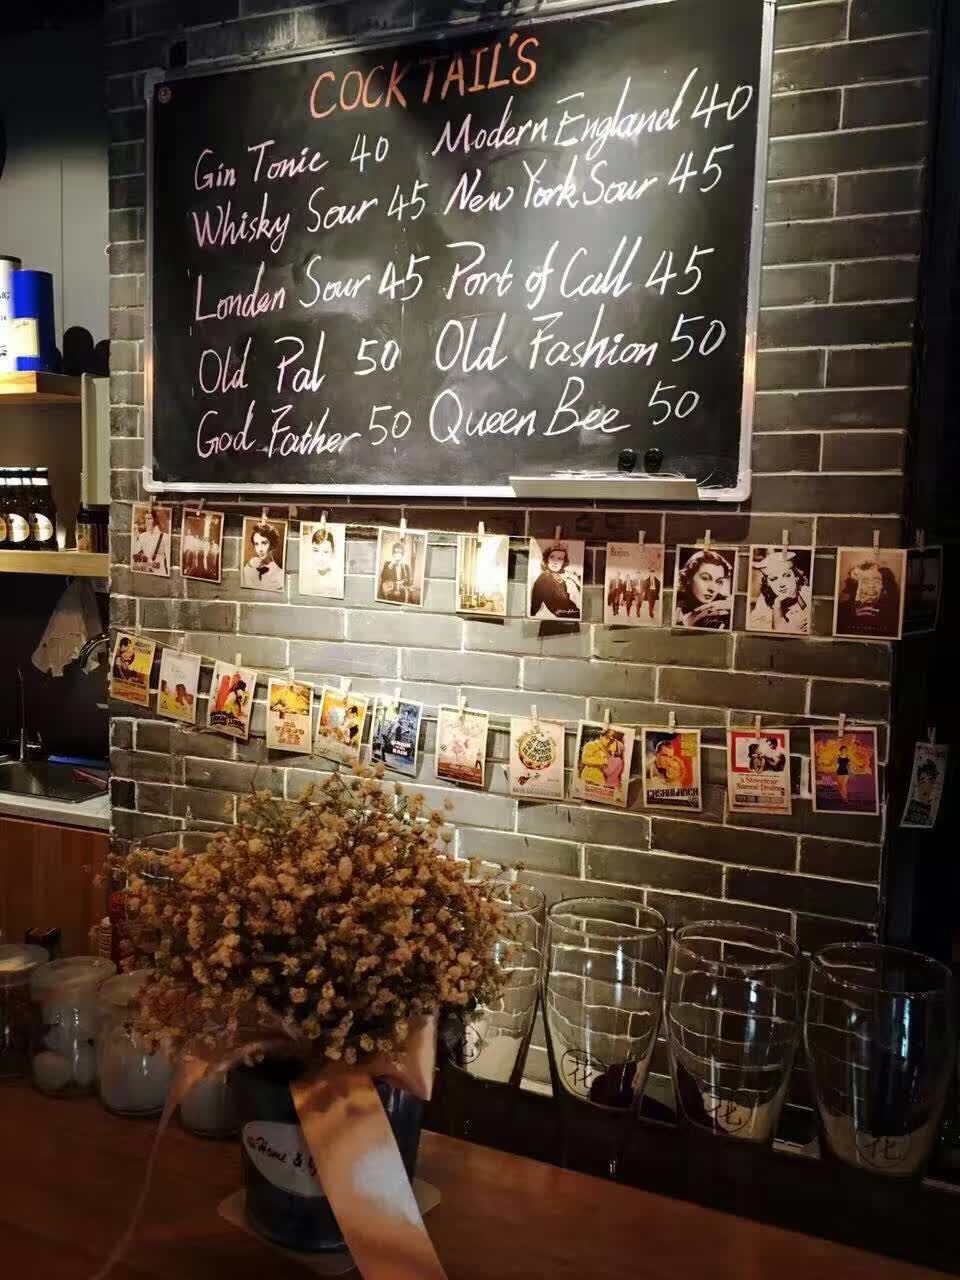 COCKTAIL'S
Gin Tonic 40 Modern England 40
Whisky Sour 45 New York Sour 45
London Sour 45 Port of Call 45
Old Pal 50 Old Fashion 50
God Father 50 Queen Bee 50
CASABLANCA
a Streetcar
Named Desire
Home &
花
花
花